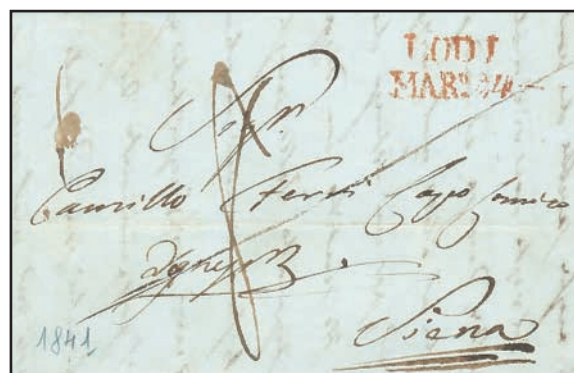 LODI
MAR: 24
Sigr.
Camillo Ferri Capo Comico
Siena
1841